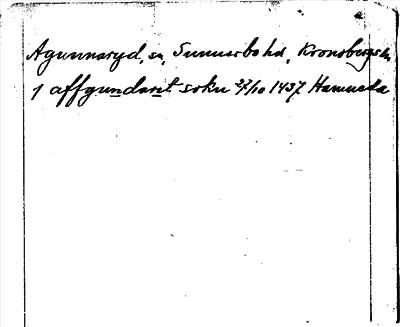 Agunnaryd, sn, Sunnerbo hd, Kronobergs l.
1 affgundarit sokn 27/10 1437 Hamneda